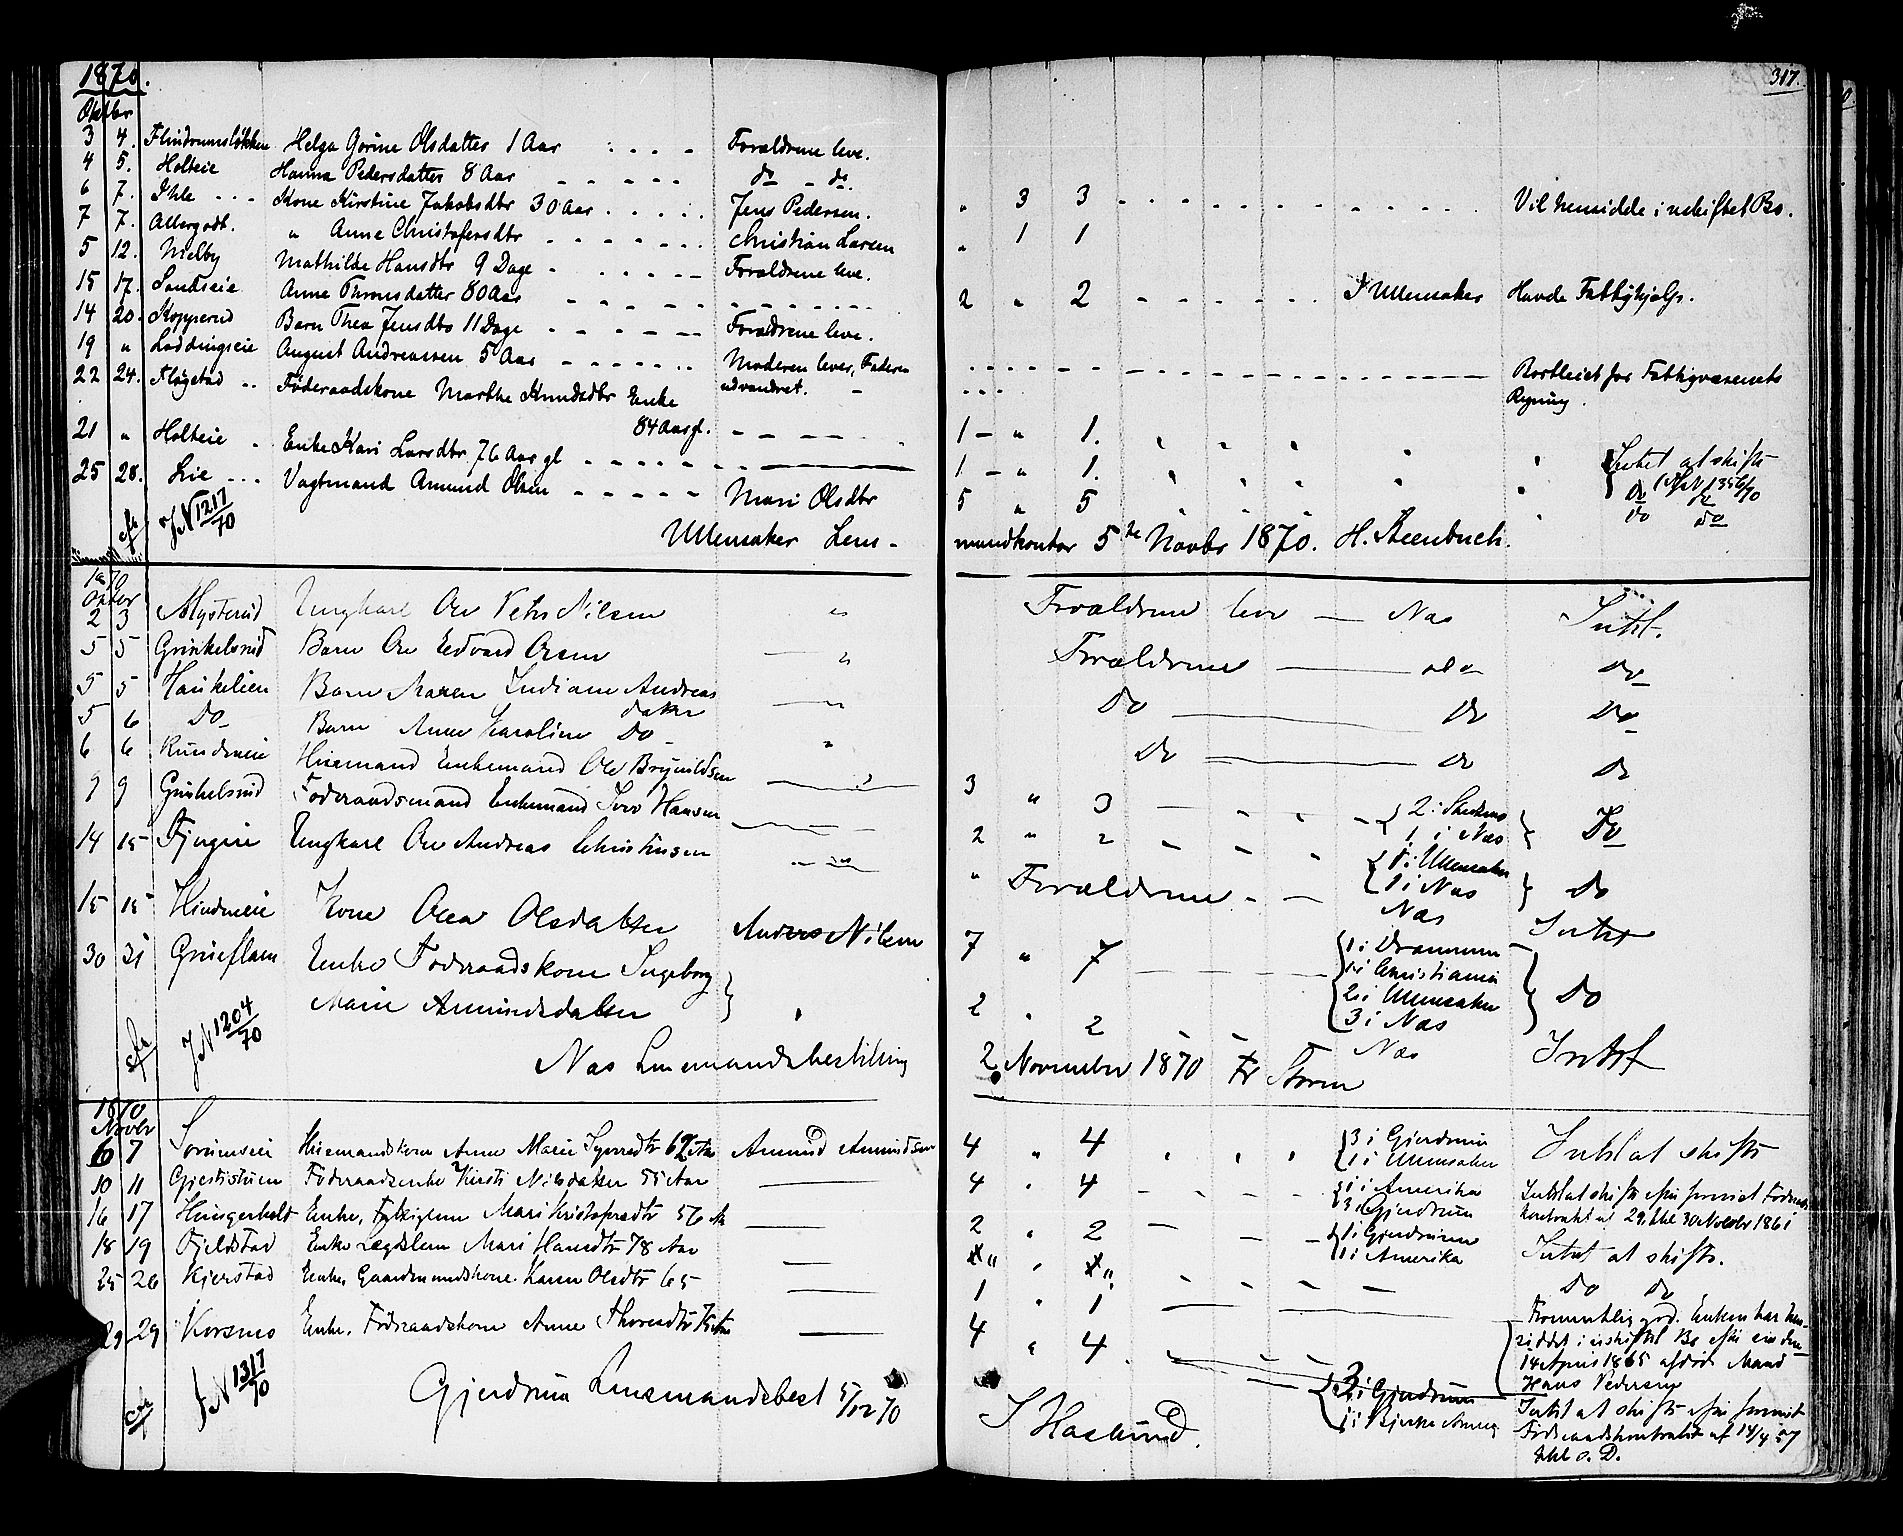 1870.
317.
Oktbr
3 4. Flindrumsløkken Helga Gorine Olsdatter 1 Aar Forældrene leve.
4 5. Holteie Hanna Pedersdatter 8 Aar do do.
6 7. Ihle Kone Kirstine Jakobsdtr 30 Aar Jens Pedersen. " 3 3 Vil hensidde i uskiftet Bo.
7 7. Allergodt. " Anne Christofersdtr Christian Larsen " 1 1
5 12. Melby Mathilde Hansdtr 9 Dage Forældrene leve.
15 17. Sandseie Anne Thronsdatter 80 Aar 2 " 2 I Ullensaker Havde Fattighjælp.
14 20. Kopperud Barn Thea Jensdtr 11 Dage Forældrene leve.
19 " Løddingseie August Andreassen 5 Aar Moderen lever, Faderen udvandret. Bortleiet for Fattigvæsenets Regning.
22 24. Fløgstad Føderaadskone Marthe Knudsdtr Enke
84 Aar gl. 1 " 1.
21 " Holteie Enke Kari Larsdtr 76 Aar gl 1 " 1. Intet at skifte
25 28. Lie Vagtmand Amund Olsen Mari Olsdtr 5 " 5 do do
cfr JN 1217/70
Ullensaker Lens- mandkontor 5te Novbr 1870. H. Steenbuch.
1870
Oktber
2 3 Mysterud Ungkarl Ole Petter Nilsen " Forældrene leve Næs Intet.
5 5 Grinkelsrud Barn Ole Edvard Olsen " Forældrene do Do
5 5 Haukelien Barn Maren Indiane Andreas
datter " Do Do Do
5 6 Do Barn Anne Karoline Do " Do Do Do
6 6 Rundmeie Huusmand Enkemand Ole Brynildsen 3 " 3 { 2 i Skedsmo
1 i Næs } Do
9 9 Grinkelsrud Føderaadsmand Enkemand Iver Hansen 2 " 2 { 1 i Ullensaker
1 i Næs } Do
14 15 Ungkarl Ole Andreas Christiansen " Forældrene Næs Intet
15 15 Kone Olea Olsdatter Anders Nilsen 7 " 7 { 1 i Drammen
1 i Christiania
2 i Ullensaker
3 i Næs } Do
30 31 Enke Føderaadskone Ingeborg
Marie Amundsdatter 2 " 2 Næs Intet
cfr JN 1204/70
Næs Lensmandsbestilling 2 November 1870 Fr Storm
1870
Novbr
6 7 Sørumseie Huusmandskone Anne Marie 62 Aar Amund Amundsen 4 " 4 { 3 i Gjerdrum
1 i Ullensaker Intet at skifte
10 11 Gjestistuen Føderaadsenke Kirsti Nilsdatter 55 Aar 4 " 4 { 1 i Amerika
3 i Gjerdrum Intet at skifte efter forevist Føderaads
kontrakt af 29, thl 30 Novbr 1861
16 17 Hungerholdt Enke, Fattiglem Mari Kristofersdtr 56 Aar 2 " 2 { 1 i Gjerdrum
1 i Amerika Intet at skifte.
18 19 Fjeldstad Enke Lægdslem Mari Hansdtr 78 Aar Do Do
25 26 Kjerstad Enke, Gaardmandskone Karen Olsdtr 65 1 " 1 Formentlig god. Enken har hen-
siddet i uskiftet Bo efter sin den
14 April 1865 afdøde Mand
Hans Pedersen
29 29 Korsmo Enke, Føderaadskone Anne 4 " 4 { 3 i Gjerdrum
1 i Intet at skifte efter forevist
Føderaadskontrakt af 14/4 57
thl s. D.
cfr JN 1317/70
Gjerdrum Lensmandsbest 5/12 70 S Haslund.